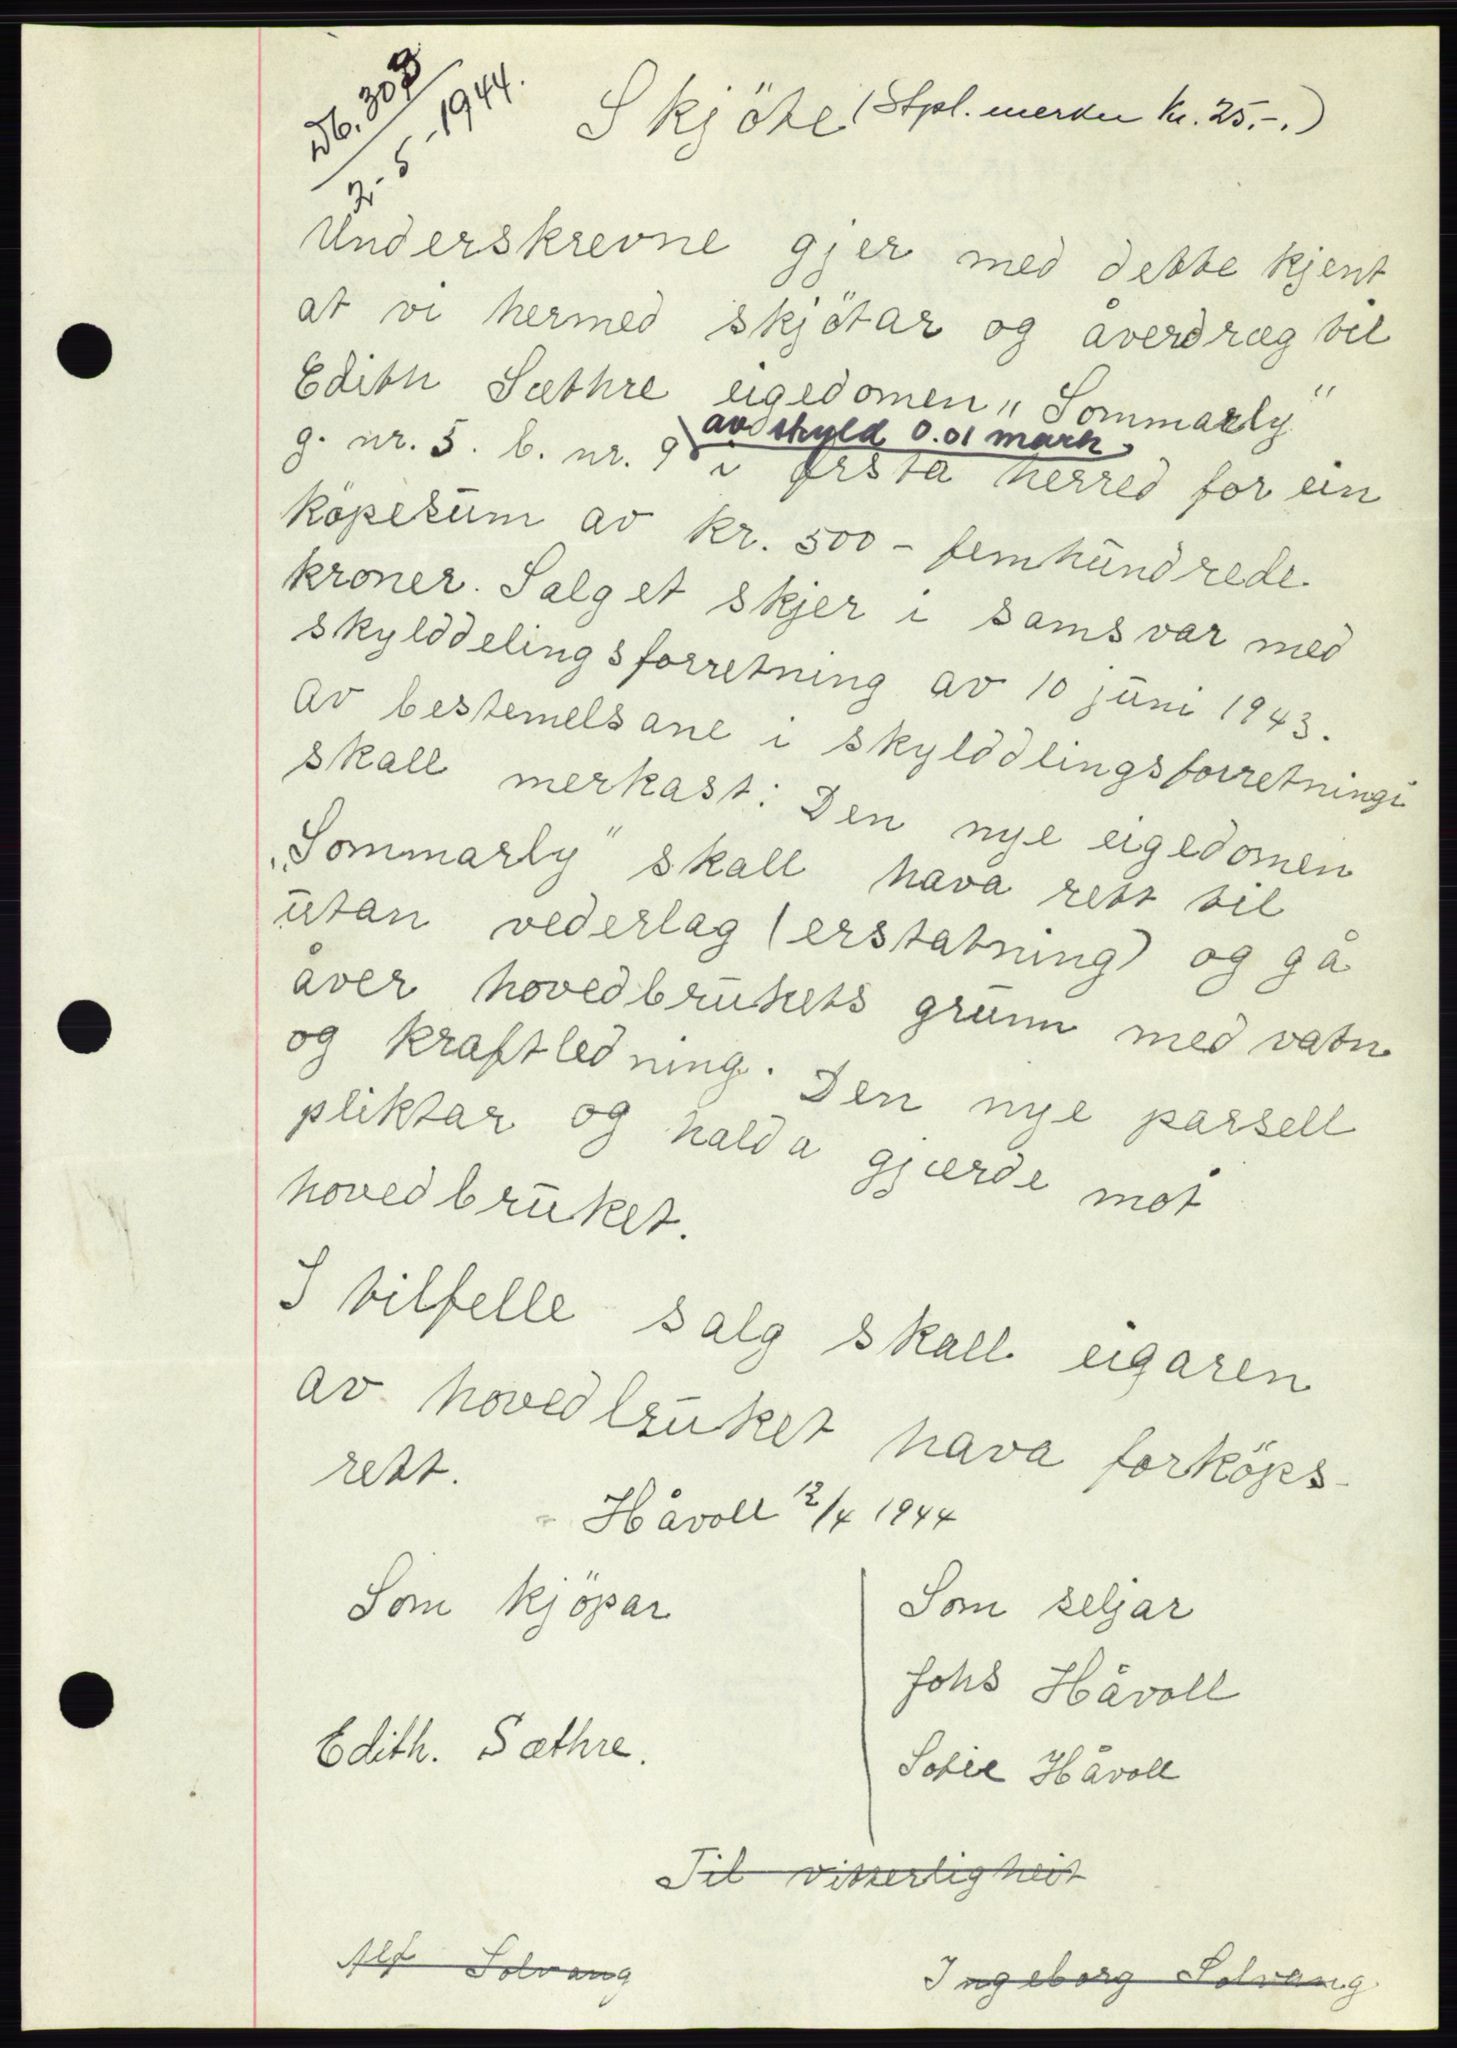 Db. 308
2.-5-1944.
Skjöte (Stpl. merker kr. 25.-.)
Underskrevne gjer med dette kjent
at vi hermed skjötar og åverdræg til
Edith Sæthre eigedomen „Sommarly"
avskyld 0.01 mark
g. nr. 5. b. nr. 9 i Ørsta herred for ein
köpesum av kr. 500 - femhundrede
kroner. Salget skjer i samsvar med
skylddelingsforretning av 10 juni 1943.
Av bestemelsane i skylddlingsforretningi
skall merkast: Den nye eigedomen
„Sommarly" skall hava rett til
utan vederlag (erstatning) og gå
åver hovedbrukets grunn med vatn
og kraftledning. Den nye parsell
pliktar og halda gjærde mot
hovedbruket.
I tilfelle salg skall eigaren
av hovedbruket hava forköps-
rett.
Håvoll 12/4 1944
Som kjöpar
Som seljar
Johs Håvoll
Edith. Sæthre.
Sofie Håvoll
Til vitterligheit
Alf Solvang
Ingeborg Solvang